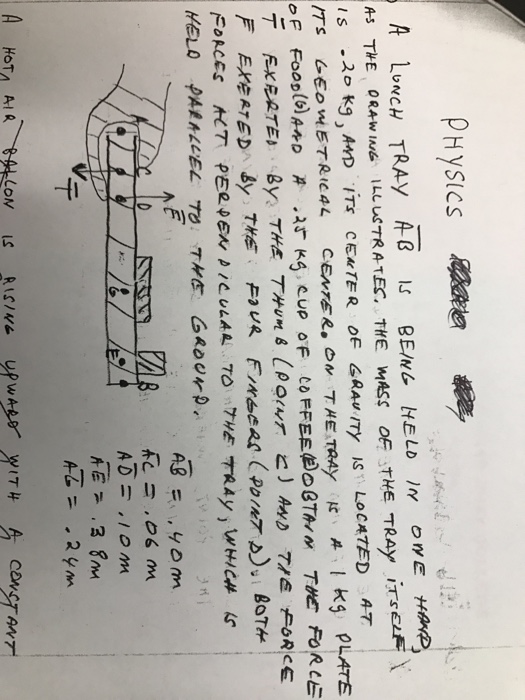 PHYSICS
A LUNCH TRAY AB IS BEING HELD IN ONE HAND,
AS THE DRAWING ILLUSTRATES. THE MASS OF THE TRAY ITSELF
IS .20 KG, AND ITS CENTER OF GRAVITY IS LOCATED AT
ITS GEOMETRICAL CENTER. ON THE TRAY IS A 1 KG PLATE
OF FOOD(G) AND A .25 KG CUP OF COFFEE(E) OBTAIN THE FORCE
T EXERTED BY THE THUMB (POINT C) AND THE FORCE
F EXERTED BY THE FOUR FINGERS (POINT D). BOTH
FORCES ACT PERPENDICULAR TO THE TRAY, WHICH IS
HELD PARALLEL TO THE GROUND.
F
A C D G E B
T
AB = .40 m
AC = .06 m
AD = .10 m
AE = .38m
AG = .24m
A HOT AIR BALLON IS RISING UPWARD WITH A CONSTANT